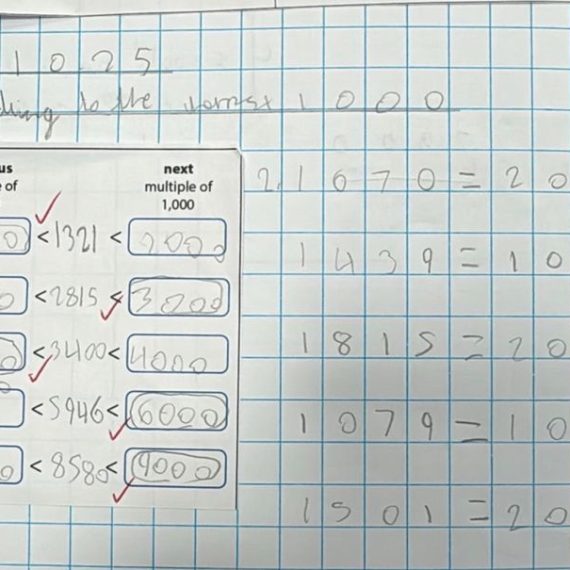 1025
to the 1000
us
of
next
multiple of
1,000
0 < 1321 < 2000
0 < 2815 < 3000
0 < 3400 < 4000
< 5946 < 6000
0 < 8580 < 9000
2. 1670 = 20
1439 = 10
1815 = 20
1079 = 10
1501 = 20